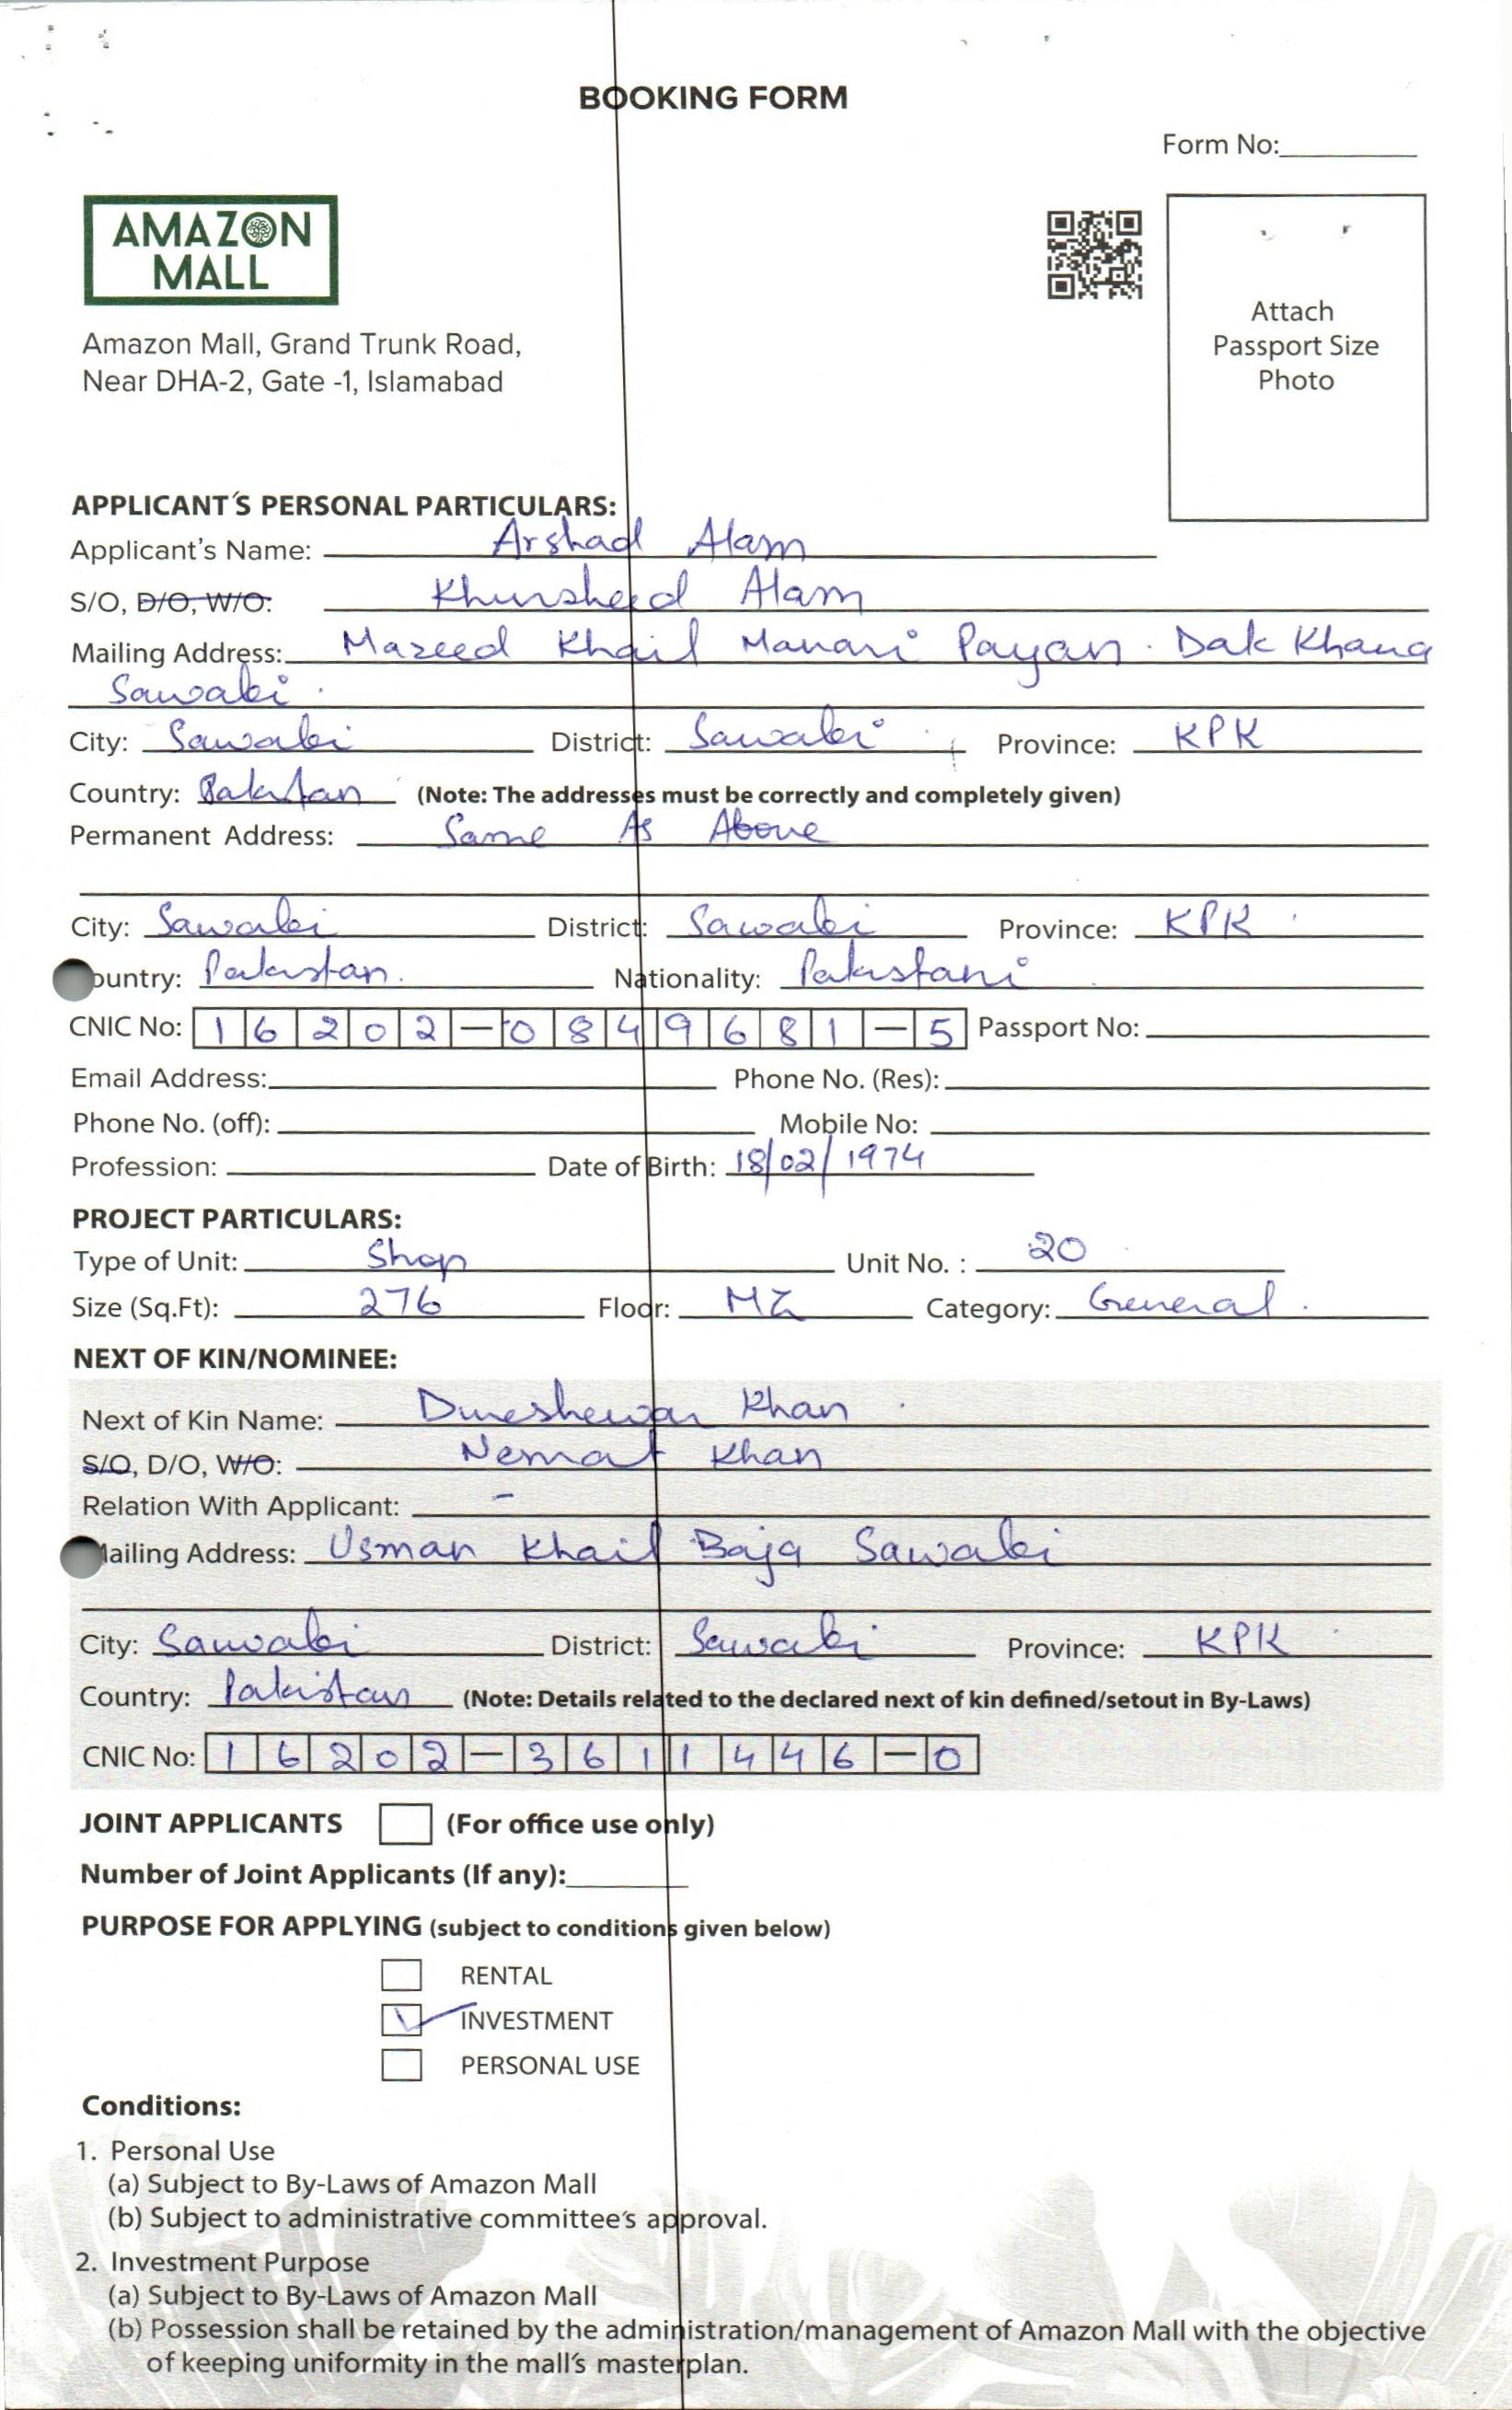 BOOKING FORM
Form No:
AMAZON
MALL
Amazon Mall, Grand Trunk Road,
Near DHA-2, Gate -1, Islamabad
Attach
Passport Size
Photo
APPLICANT'S PERSONAL PARTICULARS:
Applicant's Name: Arshad Alam
S/O, D/O, W/O: Khursheed Alam
Mailing Address: Mazeed Khail Manari Payan. Dak Khana
Sawabi.
City: Sawabi District: Sawabi Province: KPK
Country: Pakistan (Note: The addresses must be correctly and completely given)
Permanent Address: Same As Above
City: Sawabi District: Sawabi Province: KPK
ountry: Pakistan. Nationality: Pakistani
CNIC No: 16202-0849681-5 Passport No:
Email Address: Phone No. (Res):
Phone No. (off): Mobile No:
Profession: Date of Birth: 18/02/1974
PROJECT PARTICULARS:
Type of Unit: Shop Unit No. : 20
Size (Sq.Ft): 276 Floor: MZ Category: General.
NEXT OF KIN/NOMINEE:
Next of Kin Name: Khan
S/O, D/O, W/O: Nemat Khan
Relation With Applicant: -
ailing Address: Usman Khail Baja Sawabi
City: Sawabi District: Sawabi Province: KPK
Country: Pakistan (Note: Details related to the declared next of kin defined/setout in By-Laws)
CNIC No: 16202-3611446-0
JOINT APPLICANTS (For office use only)
Number of Joint Applicants (If any):
PURPOSE FOR APPLYING (subject to conditions given below)
RENTAL
INVESTMENT
PERSONAL USE
Conditions:
1. Personal Use
(a) Subject to By-Laws of Amazon Mall
(b) Subject to administrative committee's approval.
2. Investment Purpose
(a) Subject to By-Laws of Amazon Mall
(b) Possession shall be retained by the administration/management of Amazon Mall with the objective
of keeping uniformity in the mall's masterplan.